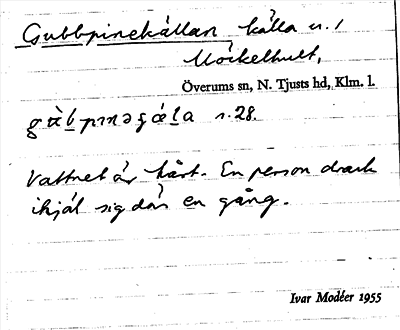 Gubbpinekällan källa n./
Möckelhult,
Överums sn, N. Tjusts hd, Klm. l.
s. 28.
Vattnet är hårt. En person drack
ihjäl sig där en gång.
Ivar Modéer 1955